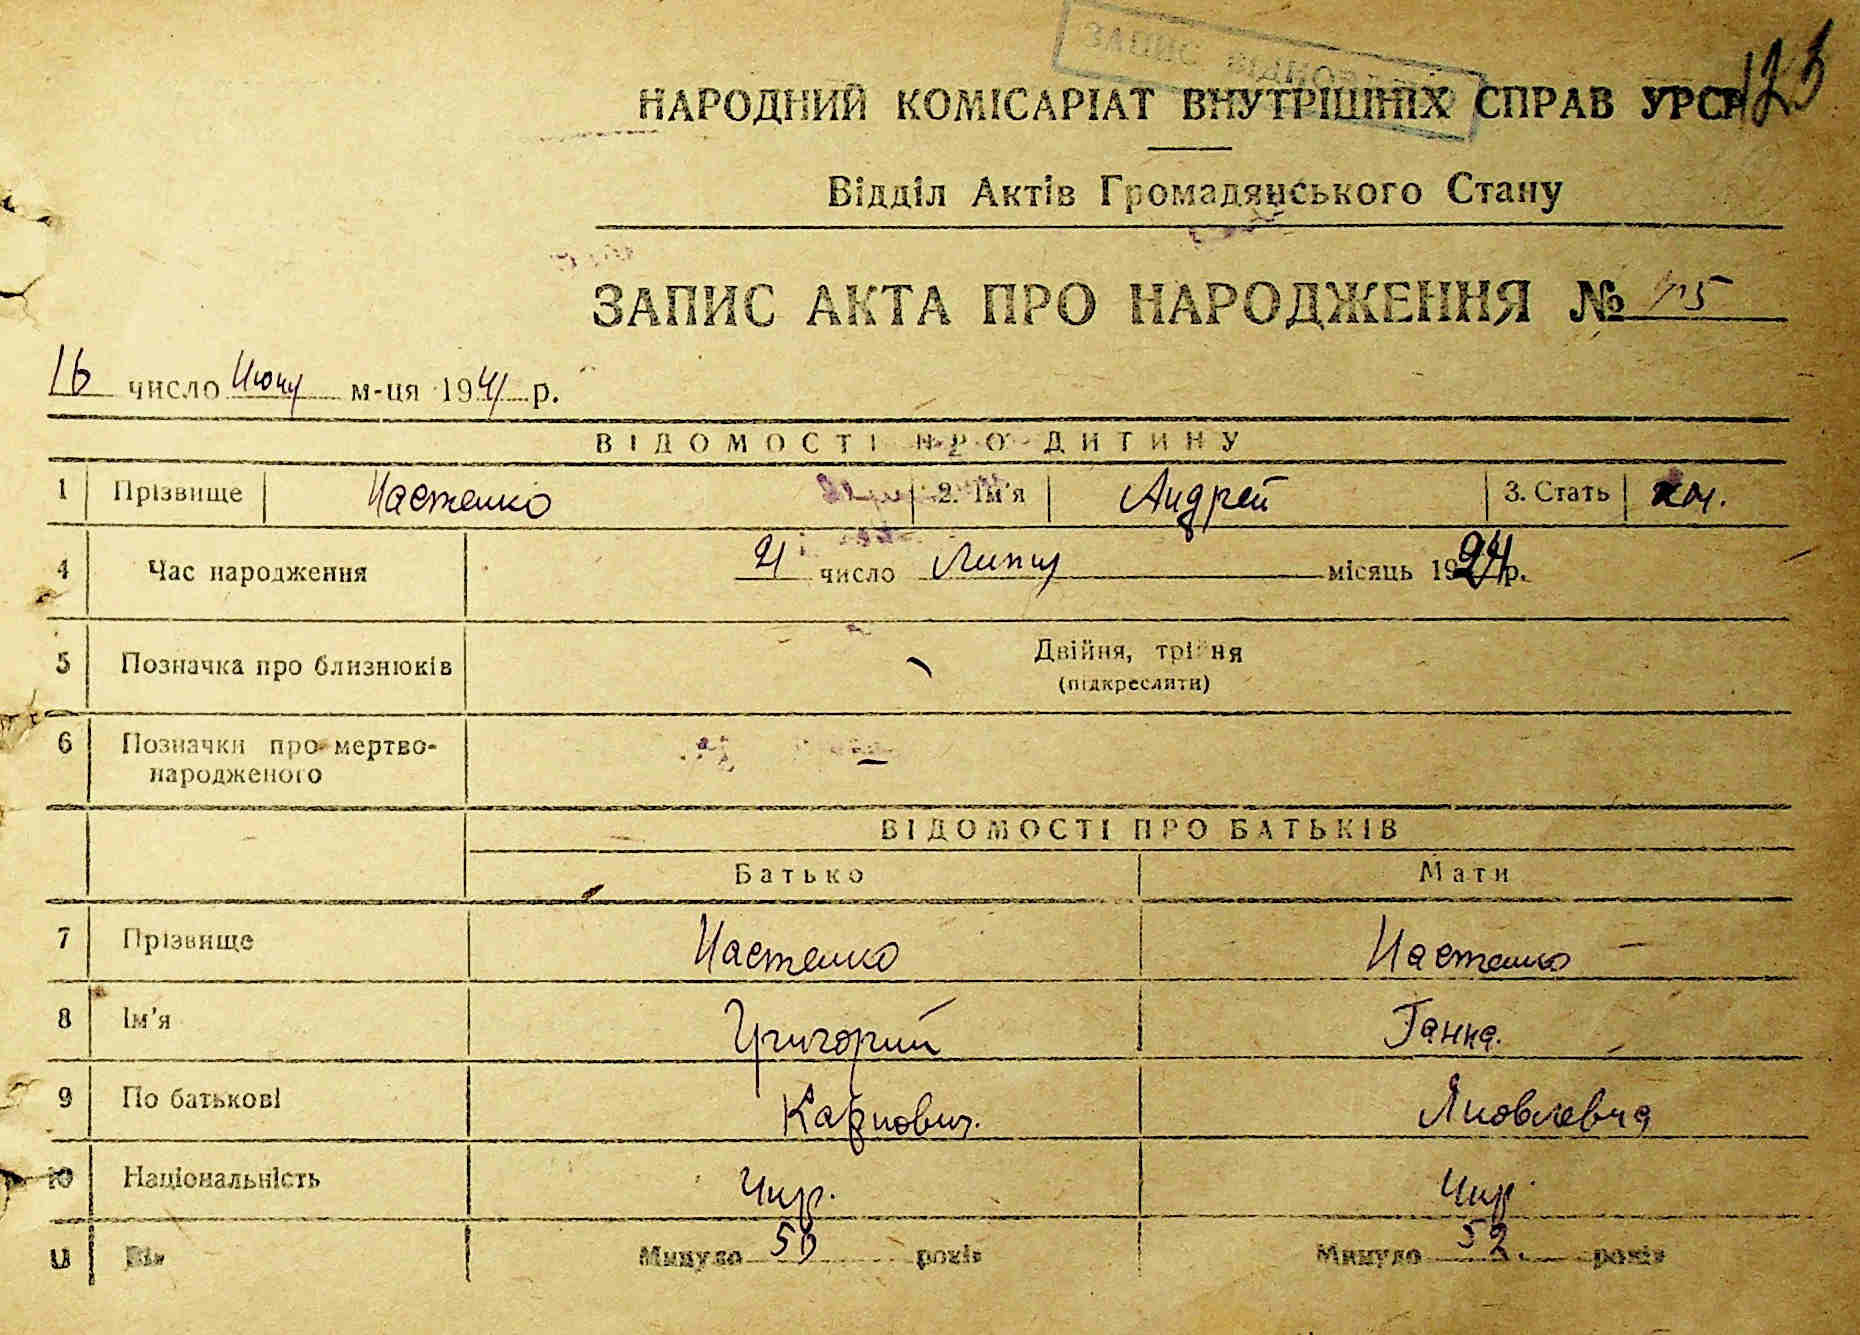 ЗАПИС ВІДНОВЛЕНО
123
НАРОДНИЙ КОМІСАРІАТ ВНУТРІШНІХ СПРАВ УРСР
Відділ Актів Громадянського Стану
ЗАПИС АКТА ПРО НАРОДЖЕННЯ №
16 число Июня м-ця 1941 р.
ВІДОМОСТІ ПРО ДИТИНУ
1 Прізвище Настенко 2. Ім'я Андрей 3. Стать
4 Час народження 21 число Липня місяць 1924 р.
5 Позначка про близнюків Двійня, трійня
(підкреслити)
6 Позначки про мертво-
народженого —
ВІДОМОСТІ ПРО БАТЬКІВ
Батько Мати
7 Прізвище Настенко Настенко
8 Ім'я Григорий Ганна.
9 По батькові Карпович. Яковлевна
10 Національність Укр. Укр.
11 Вік Минуло 59 років Минуло 52. років